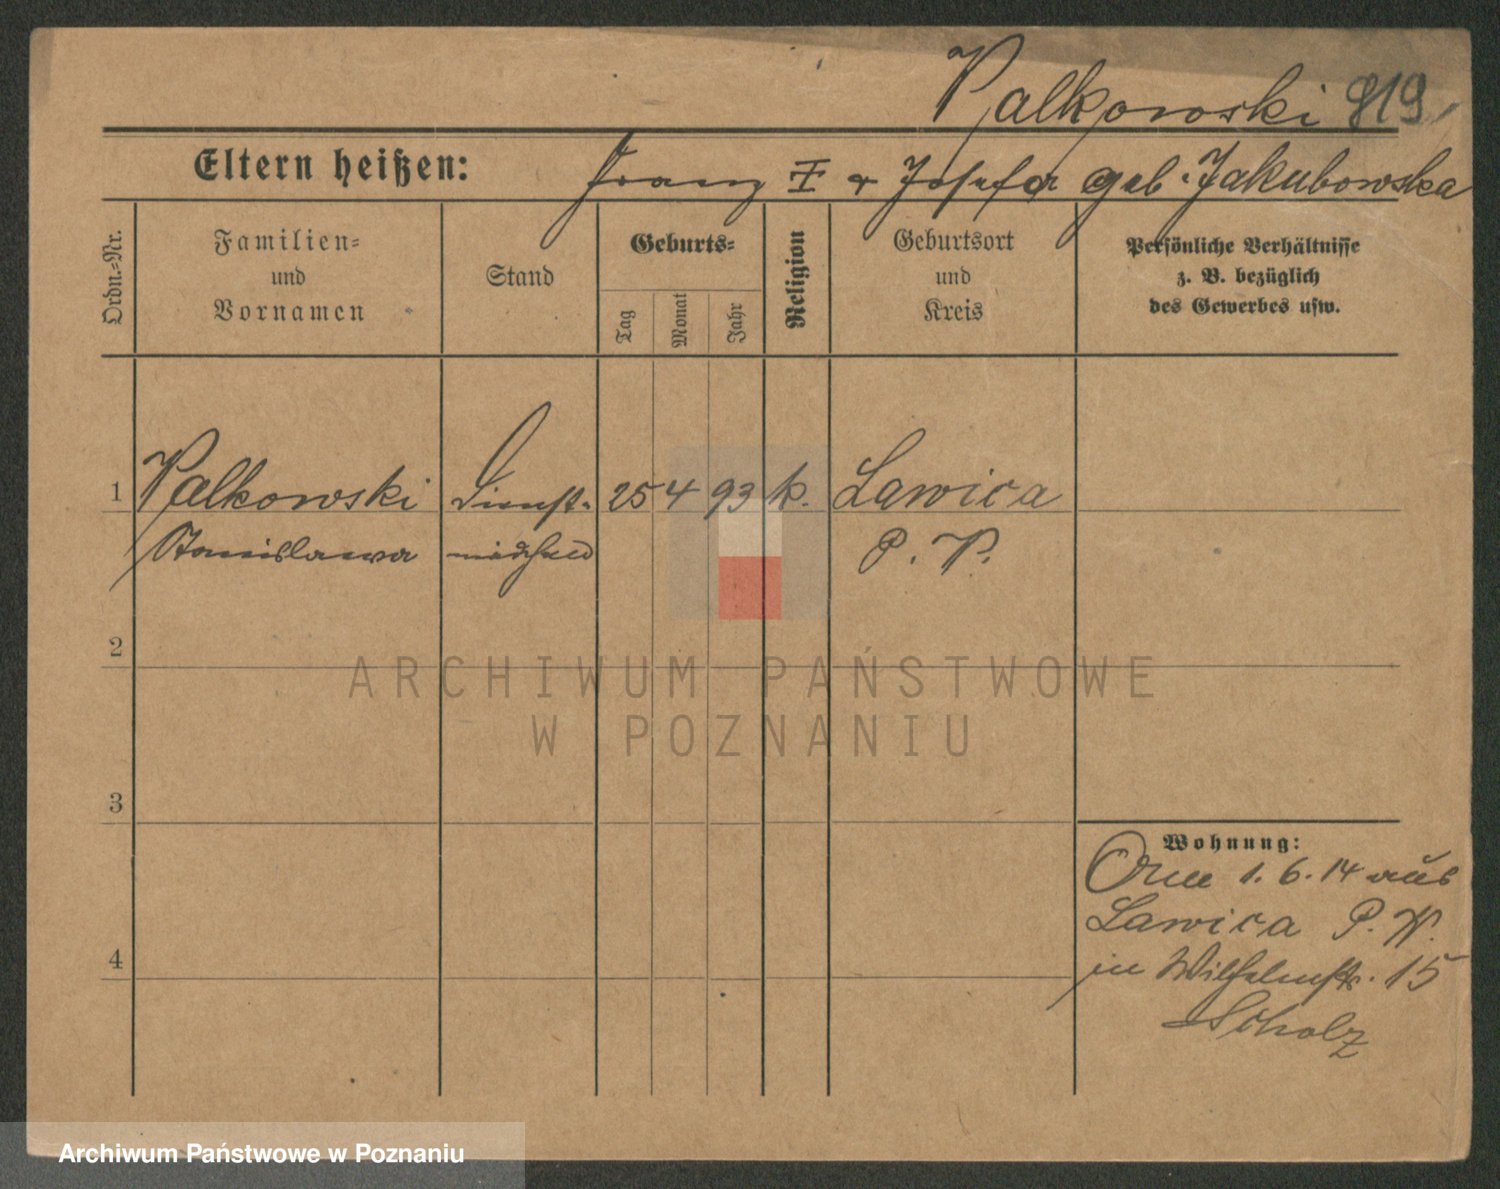 Palkowski 819
Eltern heißen: Franz I + Josefa geb. Jakubowska
Ordn.-Nr.
Familien-
und
Vornamen
Stand
Geburts-
Tag
Monat
Jahr
Religion
Geburtsort
und
Kreis
Persönliche Verhältnisse
z. B. bezüglich
des Gewerbes usw.
1 Palkowski Dienst- 25 4 93 k. Lawica
Stanislawa mädchen P. W.
2
ARCHIWUM PAŃSTWOWE
W POZNANIU
3
Wohnung:
1. 6. 14 aus
Lawica P. W.
4
in Wilhelmstr. 15
Scholz
Archiwum Państwowe w Poznaniu